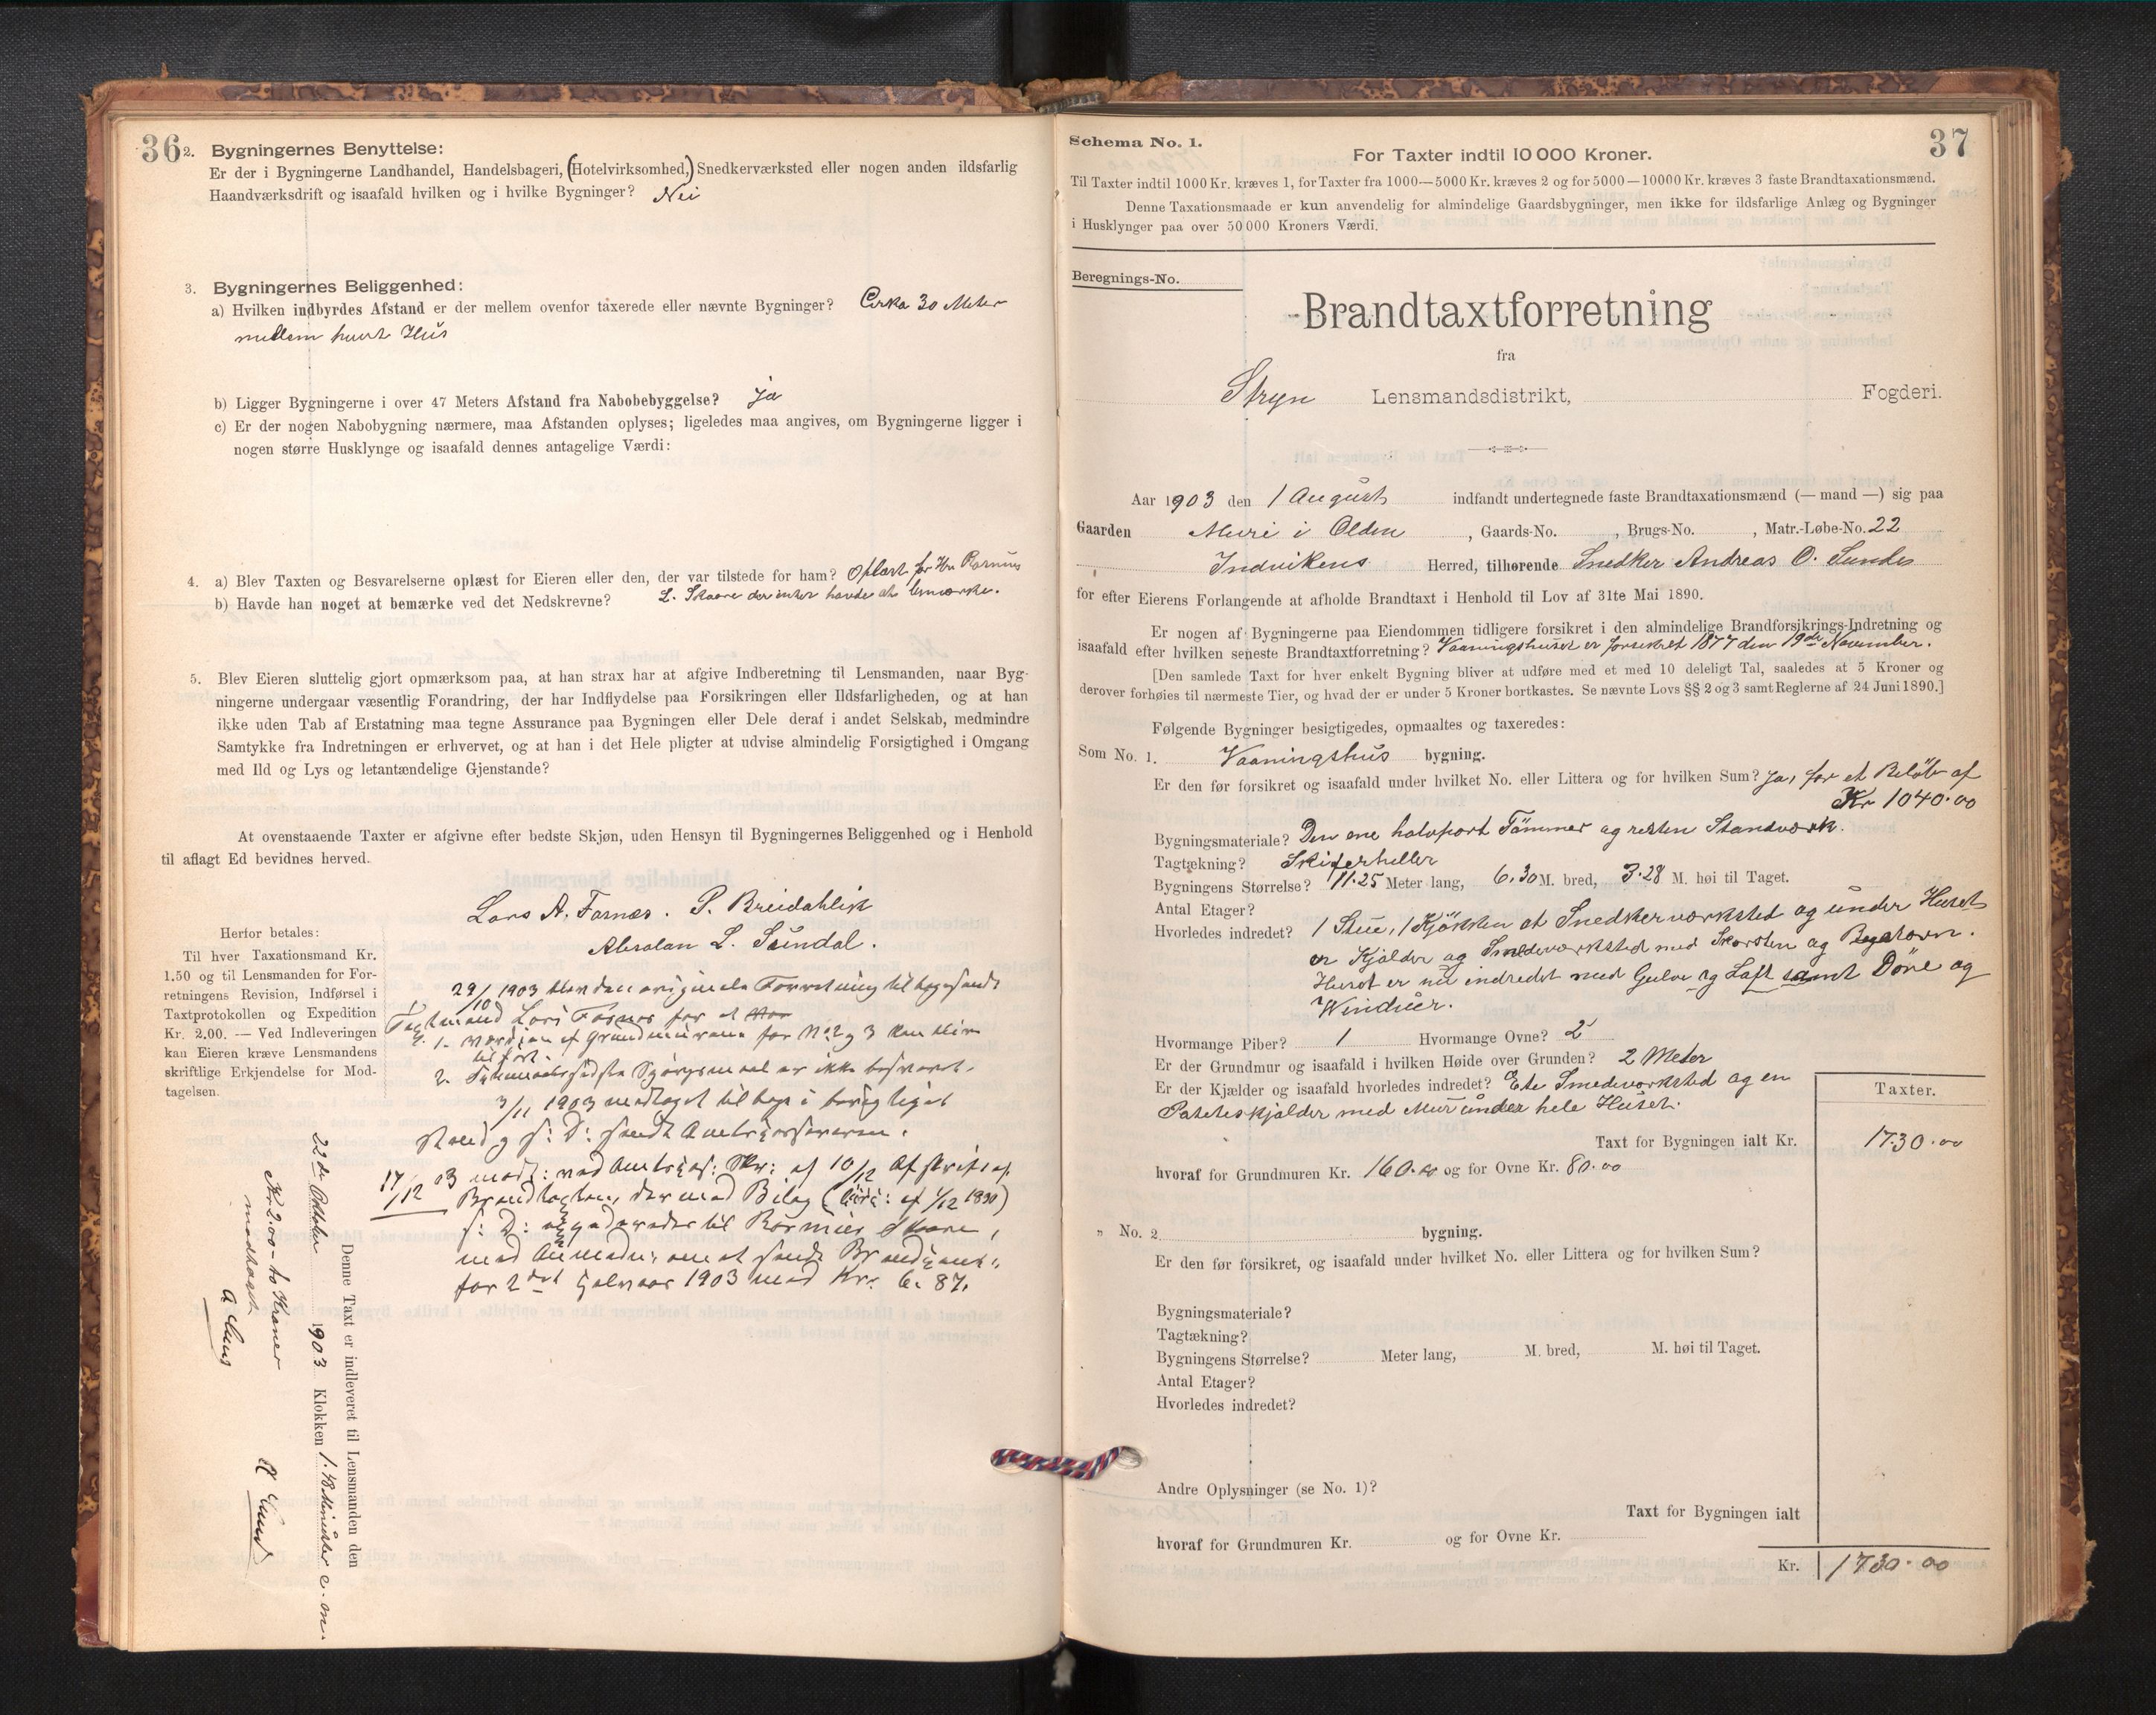 36
2. Bygningernes Benyttelse:
Er der i Bygningerne Landhandel, Handelsbageri, (Hotelvirksomhed,) Snedkerværksted eller nogen anden ildsfarlig
Haandværksdrift og isaafald hvilken og i hvilke Bygninger? Nei
3. Bygningernes Beliggenhed:
a) Hvilken indbyrdes Afstand er der mellem ovenfor taxerede eller nævnte Bygninger? Cirka 30 Meter
mellem hvert Hus
b) Ligger Bygningerne i over 47 Meters Afstand fra Nabobebyggelse? Ja
c) Er der nogen Nabobygning nærmere, maa Afstanden oplyses; ligeledes maa angives, om Bygningerne ligger i
nogen større Husklynge og isaafald dennes antagelige Værdi:
4. a) Blev Taxten og Besvarelserne oplæst for Eieren eller den, der var tilstede for ham? Oplæst for Hr. Rasmus
b) Havde han noget at bemærke ved det Nedskrevne? L. Skaare der intet havde at bemærke.
5. Blev Eieren sluttelig gjort opmærksom paa, at han strax har at afgive Indberetning til Lensmanden, naar Byg-
ningerne undergaar væsentlig Forandring, der har Indflydelse paa Forsikringen eller Ildsfarligheden, og at han
ikke uden Tab af Erstatning maa tegne Assurance paa Bygningen eller Dele deraf i andet Selskab, medmindre
Samtykke fra Indretningen er erhvervet, og at han i det Hele pligter at udvise almindelig Forsigtighed i Omgang
med Ild og Lys og letantændelige Gjenstande?
At ovenstaaende Taxter er afgivne efter bedste Skjøn, uden Hensyn til Bygningernes Beliggenhed og i Henhold
til aflagt Ed bevidnes herved.
Lars A. Farnæs. P. Breidahlik
Absalon L. Sundal.
Herfor betales:
Til hver Taxationsmand Kr.
1.50 og til Lensmanden for For-
retningens Revision, Indførsel i
Taxtprotokollen og Expedition
Kr. 2.00. — Ved Indleveringen
kan Eieren kræve Lensmandens
skriftlige Erkjendelse for Mod-
tagelsen.
29/10 1903 blev den originale Forretning tilbagesendt
Taxtmand Lars Farnes for at
1. Værdien af Grundmurene for No 2 og 3 kan blive
tilført.
2. Spørgsmaal er ikke besvaret.
3/11 1903 modtaget tilbage i
Stand og s: D: sendt Amts
17/12 03 modt: ved Skr: af 10/12 Afskrift af
Brandtaxten, der med Bilag
s: D: til Rasmus Skaare,
med Anmodn: om at sende
for 2det Halvaar 1903 med Kr. 6.87.
Denne Taxt er indleveret til Lensmanden den
22de Oktober 1903 Klokken 1.48 Minutter e.m.
Kr. 2.00 - to Kroner
modtaget.
37
Schema No. 1.
For Taxter indtil 10 000 Kroner.
Til Taxter indtil 1000 Kr. kræves 1, for Taxter fra 1000—5000 Kr. kræves 2 og for 5000—10000 Kr. kræves 3 faste Brandtaxationsmænd.
Denne Taxationsmaade er kun anvendelig for almindelige Gaardsbygninger, men ikke for ildsfarlige Anlæg og Bygninger
i Husklynger paa over 50 000 Kroners Værdi.
Beregnings-No.
Brandtaxtforretning
fra
Stryn Lensmandsdistrikt, Fogderi.
Aar 1903 den 1 August indfandt undertegnede faste Brandtaxationsmænd (— mand —) sig paa
Gaarden Muri i Olden, Gaards-No. , Brugs-No. , Matr.-Løbe-No. 22
Indvikens Herred, tilhørende Snedker Andreas O. Sunde
for efter Eierens Forlangende at afholde Brandtaxt i Henhold til Lov af 31te Mai 1890.
Er nogen af Bygningerne paa Eiendommen tidligere forsikret i den almindelige Brandforsikrings-Indretning og
isaafald efter hvilken seneste Brandtaxtforretning? Vaaningshuset er forsikret 1877 den 19de November.
[Den samlede Taxt for hver enkelt Bygning bliver at udføre med et med 10 deleligt Tal, saaledes at 5 Kroner og
derover forhøies til nærmeste Tier, og hvad der er under 5 Kroner bortkastes. Se nævnte Lovs §§ 2 og 3 samt Reglerne af 24 Juni 1890.]
Følgende Bygninger besigtigedes, opmaaltes og taxeredes:
Som No. 1. Vaaningshus bygning.
Er den før forsikret og isaafald under hvilket No. eller Littera og for hvilken Sum? Ja, for et Beløb af
Kr 1040.00
Bygningsmateriale? Den ene halvpart Tømmer og resten Standværk.
Tagtækning? Skiferheller
Bygningens Størrelse? 11.25 Meter lang, 6.30 M. bred, 3.28 M. høi til Taget.
Antal Etager?
Hvorledes indredet? 1 Stue, 1 Kjøkken et Snedkerværksted og under Huset
er Kjælder og Smedeværksted med Skorsten og Bageravn.
Huset er nu indredet med Gulve og Loft samt Døre og
Winduer.
Hvormange Piber? 1 Hvormange Ovne? 2
Er der Grundmur og isaafald i hvilken Høide over Grunden? 2 Meter
Er der Kjælder og isaafald hvorledes indredet? Ete Smedeværksted og en
Poteteskjælder med Mur under hele Huset.
Taxter.
Taxt for Bygningen ialt Kr. 1730.00
hvoraf for Grundmuren Kr. 160.00 og for Ovne Kr. 80.00
„ No. 2 bygning.
Er den før forsikret, og isaafald under hvilket No. eller Littera og for hvilken Sum?
Bygningsmateriale?
Tagtækning?
Bygningens Størrelse? Meter lang, M. bred, M. høi til Taget.
Antal Etager?
Hvorledes indredet?
Andre Oplysninger (se No. 1)?
Taxt for Bygningen ialt
hvoraf for Grundmuren Kr. og for Ovne Kr.
Kr. 1730.00